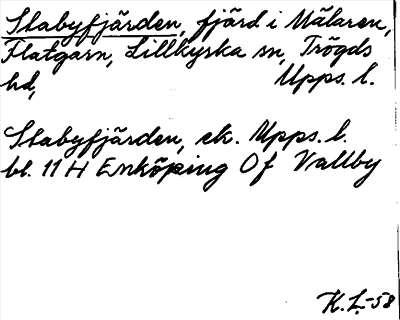 Slabyfjärden, fjärd i Mälaren,
Flatgarn, Lillkyrka sn, Trögds
hd, Upps. l.
Slabyfjärden, ek. Upps. l.
bl. 11 H Enköping Of Vallby
K.L.-58